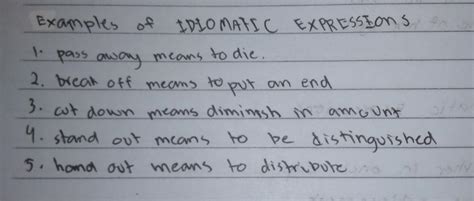 Examples of IDIOMATIC EXPRESSIONS
1. pass away means to die.
2. break off means to put an end
3. cut down means diminish in amount
4. stand out means to be distinguished
5. hand out means to distribute